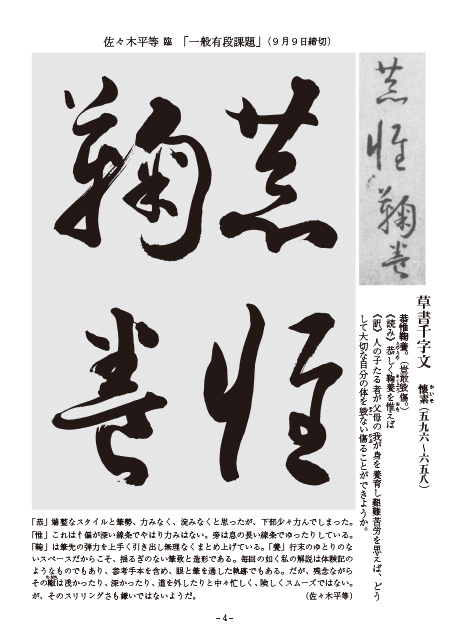 佐々木平等 臨 「一般有段課題」(9月9日締切)
恭惟
鞠養
恭惟鞠養
草書千字文 懐素(五九六~六五八)
恭惟鞠養。(豈敢毀傷。)
《読み》恭しく鞠養を惟えば
《訳》人の子たる者が父母の我が身を養育し艱難苦労を思えば、どう
して大切な自分の体を毀ない傷ることができようか。
「恭」端整なスタイルと筆勢、力みなく、淀みなくと思ったが、下部少々力んでしまった。
「惟」これは忄偏が深い線条でやはり力みはない。旁は息の長い線条でゆったりしている。
「鞠」は筆先の弾力を上手く引き出し無理なくまとめ上げている。「養」行末のゆとりのな
いスペースだからこそ、揺るぎのない筆致と造形である。毎回の如く私の解説は体験記の
ようなものでもあり、参考手本を含め、眼と筆を通した軌跡でもある。だが、残念ながら
その轍は浅かったり、深かったり、道を外したりと中々忙しく、険しくスムーズではない。
が、そのスリリングさも嫌いではないようだ。 (佐々木平等)
- 4 -